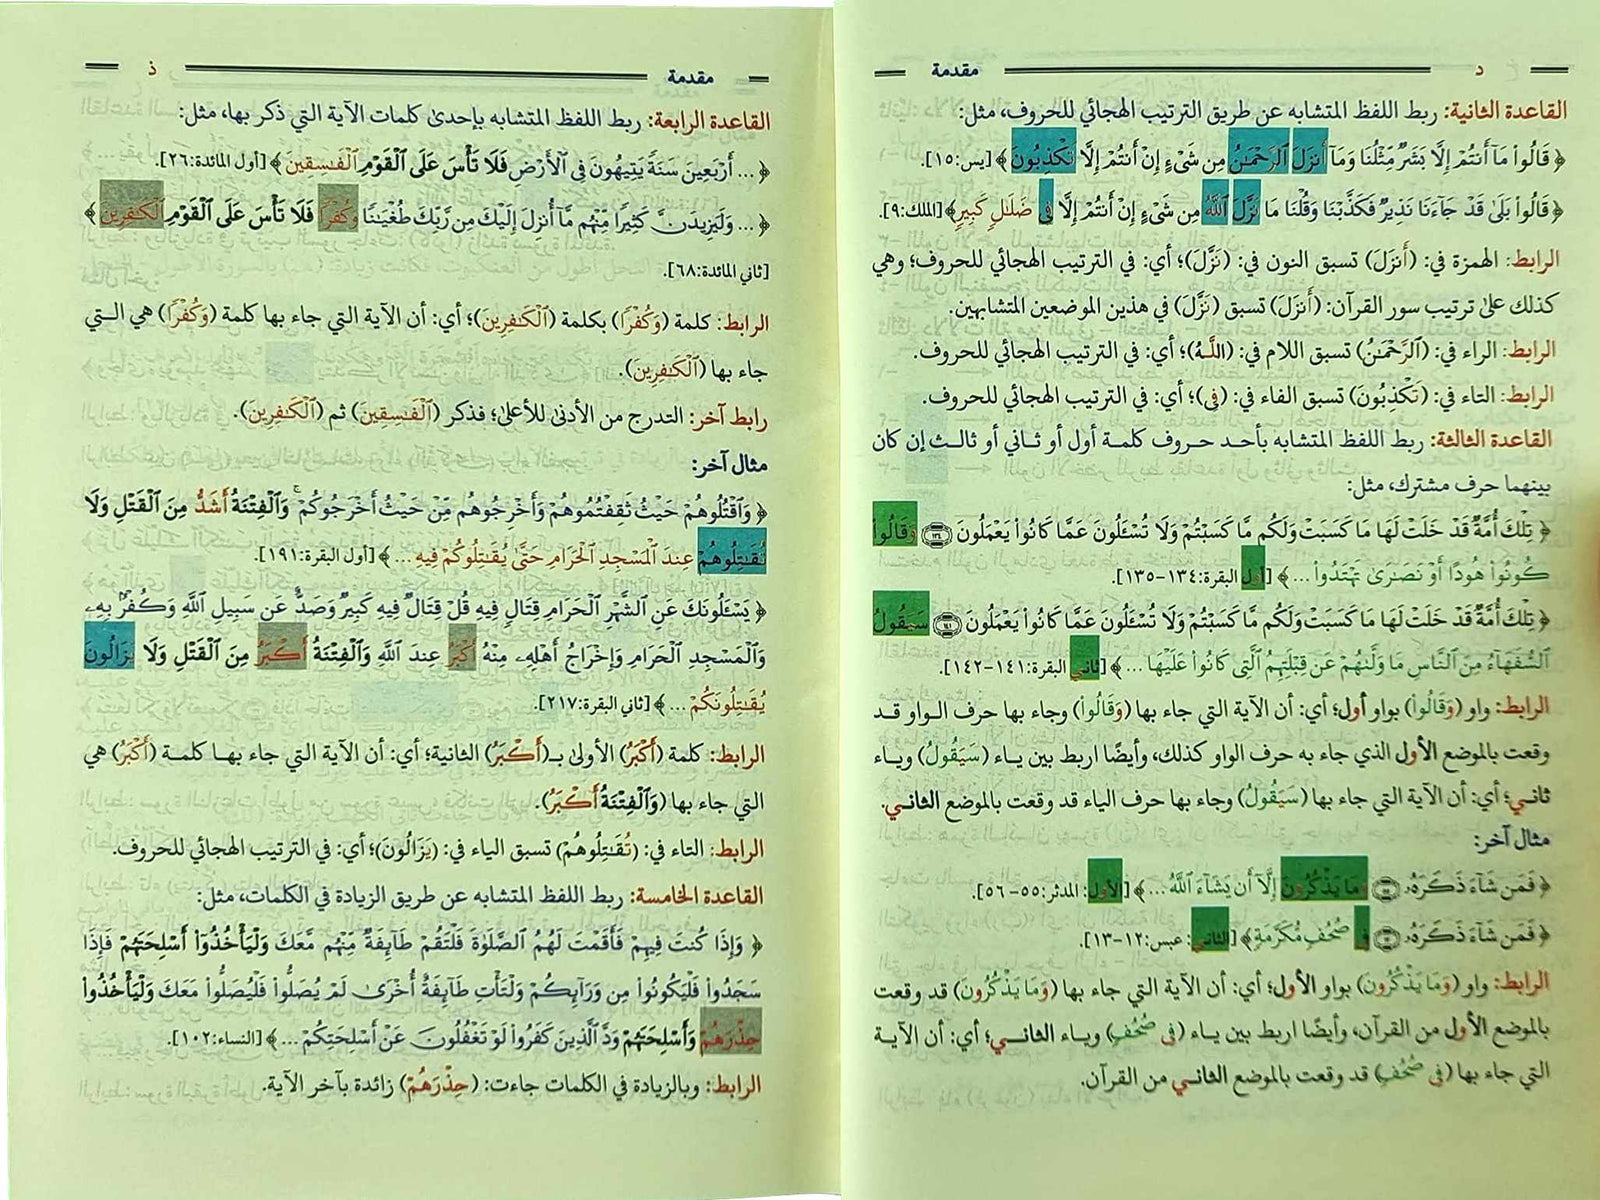 مقدمة د
القاعدة الثانية: ربط اللفظ المتشابه عن طريق الترتيب الهجائي للحروف، مثل:
﴿قَالُوا۟ مَآ أَنتُمْ إِلَّا بَشَرٌ مِّثْلُنَا وَمَآ أَنزَلَ ٱلرَّحْمَـٰنُ مِن شَىْءٍ إِنْ أَنتُمْ إِلَّا تَكْذِبُونَ﴾ [يس:١٥].
﴿قَالُوا۟ بَلَىٰ قَدْ جَآءَنَا نَذِيرٌ فَكَذَّبْنَا وَقُلْنَا مَا نَزَّلَ ٱللَّهُ مِن شَىْءٍ إِنْ أَنتُمْ إِلَّا فِى ضَلَـٰلٍ كَبِيرٍ﴾ [الملك:٩].
الرابط: الهمزة في: (أَنزَلَ) تسبق النون في: (نَزَّلَ)؛ أي: في الترتيب الهجائي للحروف؛ وهي
كذلك علىٰ ترتيب سور القرآن: (أَنزَلَ) تسبق (نَزَّلَ) في هذين الموضعين المتشابهين.
الرابط: الراء في: (ٱلرَّحْمَـٰنُ) تسبق اللام في: (اللَّـهُ)؛ أي: في الترتيب الهجائي للحروف.
الرابط: التاء في: (تَكْذِبُونَ) تسبق الفاء في: (فِى)؛ أي: في الترتيب الهجائي للحروف.
القاعدة الثالثة: ربط اللفظ المتشابه بأحد حروف كلمة أول أو ثاني أو ثالث إن كان
بينهما حرف مشترك، مثل:
﴿تِلْكَ أُمَّةٌ قَدْ خَلَتْ لَهَا مَا كَسَبَتْ وَلَكُم مَّا كَسَبْتُمْ وَلَا تُسْـَٔلُونَ عَمَّا كَانُوا۟ يَعْمَلُونَ ١٣٤ وَقَالُوا۟
كُونُوا۟ هُودًا أَوْ نَصَـٰرَىٰ تَهْتَدُوا۟ ...﴾ [أول البقرة:١٣٤-١٣٥].
﴿تِلْكَ أُمَّةٌ قَدْ خَلَتْ لَهَا مَا كَسَبَتْ وَلَكُم مَّا كَسَبْتُمْ وَلَا تُسْـَٔلُونَ عَمَّا كَانُوا۟ يَعْمَلُونَ ١٤١ سَيَقُولُ
ٱلسُّفَهَآءُ مِنَ ٱلنَّاسِ مَا وَلَّىٰهُمْ عَن قِبْلَتِهِمُ ٱلَّتِى كَانُوا۟ عَلَيْهَا ...﴾ [ثاني البقرة:١٤١-١٤٢].
الرابط: واو (وَقَالُوا۟) بواو أول؛ أي: أن الآية التي جاء بها (وَقَالُوا۟) وجاء بها حرف الواو قد
وقعت بالموضع الأول الذي جاء به حرف الواو كذلك، وأيضًا اربط بين ياء (سَيَقُولُ) وياء
ثاني؛ أي: أن الآية التي جاء بها (سَيَقُولُ) وجاء بها حرف الياء قد وقعت بالموضع الثاني.
مثال آخر:
﴿فَمَن شَآءَ ذَكَرَهُۥ ٥٥ وَمَا يَذْكُرُونَ إِلَّآ أَن يَشَآءَ ٱللَّهُ ...﴾ [الأول: المدثر:٥٥-٥٦].
﴿فَمَن شَآءَ ذَكَرَهُۥ ١٢ فِى صُحُفٍ مُّكَرَّمَةٍ﴾ [الثاني: عبس:١٢-١٣].
الرابط: واو (وَمَا يَذْكُرُونَ) بواو الأول؛ أي: أن الآية التي جاء بها (وَمَا يَذْكُرُونَ) قد وقعت
بالموضع الأول من القرآن، وأيضًا اربط بين ياء (فِى صُحُفٍ) وياء الثاني؛ أي: أن الآية
التي جاء بها (فِى صُحُفٍ) قد وقعت بالموضع الثاني من القرآن.
مقدمة ذ
القاعدة الرابعة: ربط اللفظ المتشابه بإحدىٰ كلمات الآية التي ذكر بها، مثل:
﴿... أَرْبَعِينَ سَنَةً يَتِيهُونَ فِى ٱلْأَرْضِ فَلَا تَأْسَ عَلَى ٱلْقَوْمِ ٱلْفَـٰسِقِينَ﴾ [أول المائدة:٢٦].
﴿... وَلَيَزِيدَنَّ كَثِيرًا مِّنْهُم مَّآ أُنزِلَ إِلَيْكَ مِن رَّبِّكَ طُغْيَـٰنًا وَكُفْرًا فَلَا تَأْسَ عَلَى ٱلْقَوْمِ ٱلْكَـٰفِرِينَ﴾
[ثاني المائدة:٦٨].
الرابط: كلمة (وَكُفْرًا) بكلمة (ٱلْكَـٰفِرِينَ)؛ أي: أن الآية التي جاء بها كلمة (وَكُفْرًا) هي التي
جاء بها (ٱلْكَـٰفِرِينَ).
رابط آخر: التدرج من الأدنىٰ للأعلىٰ؛ فذكر (ٱلْفَـٰسِقِينَ) ثم (ٱلْكَـٰفِرِينَ).
مثال آخر:
﴿وَٱقْتُلُوهُمْ حَيْثُ ثَقِفْتُمُوهُمْ وَأَخْرِجُوهُم مِّنْ حَيْثُ أَخْرَجُوكُمْ ۚ وَٱلْفِتْنَةُ أَشَدُّ مِنَ ٱلْقَتْلِ وَلَا
تُقَـٰتِلُوهُمْ عِندَ ٱلْمَسْجِدِ ٱلْحَرَامِ حَتَّىٰ يُقَـٰتِلُوكُمْ فِيهِ ...﴾ [أول البقرة:١٩١].
﴿يَسْـَٔلُونَكَ عَنِ ٱلشَّهْرِ ٱلْحَرَامِ قِتَالٍ فِيهِ قُلْ قِتَالٌ فِيهِ كَبِيرٌ وَصَدٌّ عَن سَبِيلِ ٱللَّهِ وَكُفْرٌۢ بِهِۦ
وَٱلْمَسْجِدِ ٱلْحَرَامِ وَإِخْرَاجُ أَهْلِهِۦ مِنْهُ أَكْبَرُ عِندَ ٱللَّهِ وَٱلْفِتْنَةُ أَكْبَرُ مِنَ ٱلْقَتْلِ وَلَا يَزَالُونَ
يُقَـٰتِلُونَكُمْ ...﴾ [ثاني البقرة:٢١٧].
الرابط: كلمة (أَكْبَرُ) الأولىٰ بـ(أَكْبَرُ) الثانية؛ أي: أن الآية التي جاء بها كلمة (أَكْبَرُ) هي
التي جاء بها (وَٱلْفِتْنَةُ أَكْبَرُ).
الرابط: التاء في: (تُقَـٰتِلُوهُمْ) تسبق الياء في: (يَزَالُونَ)؛ أي: في الترتيب الهجائي للحروف.
القاعدة الخامسة: ربط اللفظ المتشابه عن طريق الزيادة في الكلمات، مثل:
﴿وَإِذَا كُنتَ فِيهِمْ فَأَقَمْتَ لَهُمُ ٱلصَّلَوٰةَ فَلْتَقُمْ طَآئِفَةٌ مِّنْهُم مَّعَكَ وَلْيَأْخُذُوٓا۟ أَسْلِحَتَهُمْ فَإِذَا
سَجَدُوا۟ فَلْيَكُونُوا۟ مِن وَرَآئِكُمْ وَلْتَأْتِ طَآئِفَةٌ أُخْرَىٰ لَمْ يُصَلُّوا۟ فَلْيُصَلُّوا۟ مَعَكَ وَلْيَأْخُذُوا۟
حِذْرَهُمْ وَأَسْلِحَتَهُمْ وَدَّ ٱلَّذِينَ كَفَرُوا۟ لَوْ تَغْفُلُونَ عَنْ أَسْلِحَتِكُمْ ...﴾ [النساء:١٠٢].
الرابط: وبالزيادة في الكلمات جاءت: (حِذْرَهُمْ) زائدة بآخر الآية.